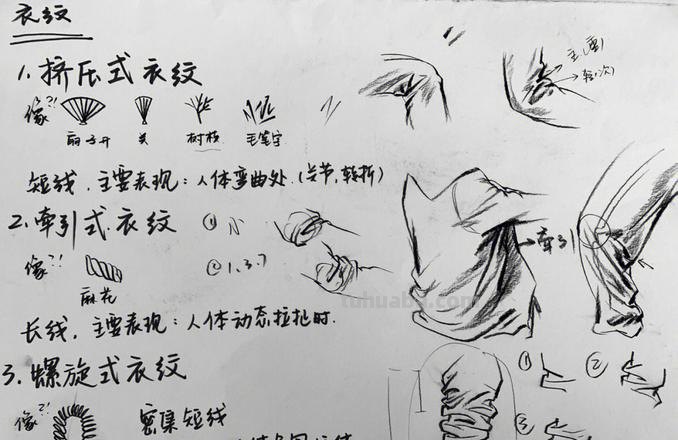 衣纹
1. 挤压式衣纹
像?!
扇子开 关 树枝 毛笔字
主(重)
轻(次)
短线，主要表现：人体弯曲处.(关节,转折)
2. 牵引式衣纹 ① N
像?! ② 1.3.7
麻花
牵引
tuhuaba.com
长线，主要表现：人体动态拉扯时.
3. 螺旋式衣纹 ① ②
像?! 密集短线 ③